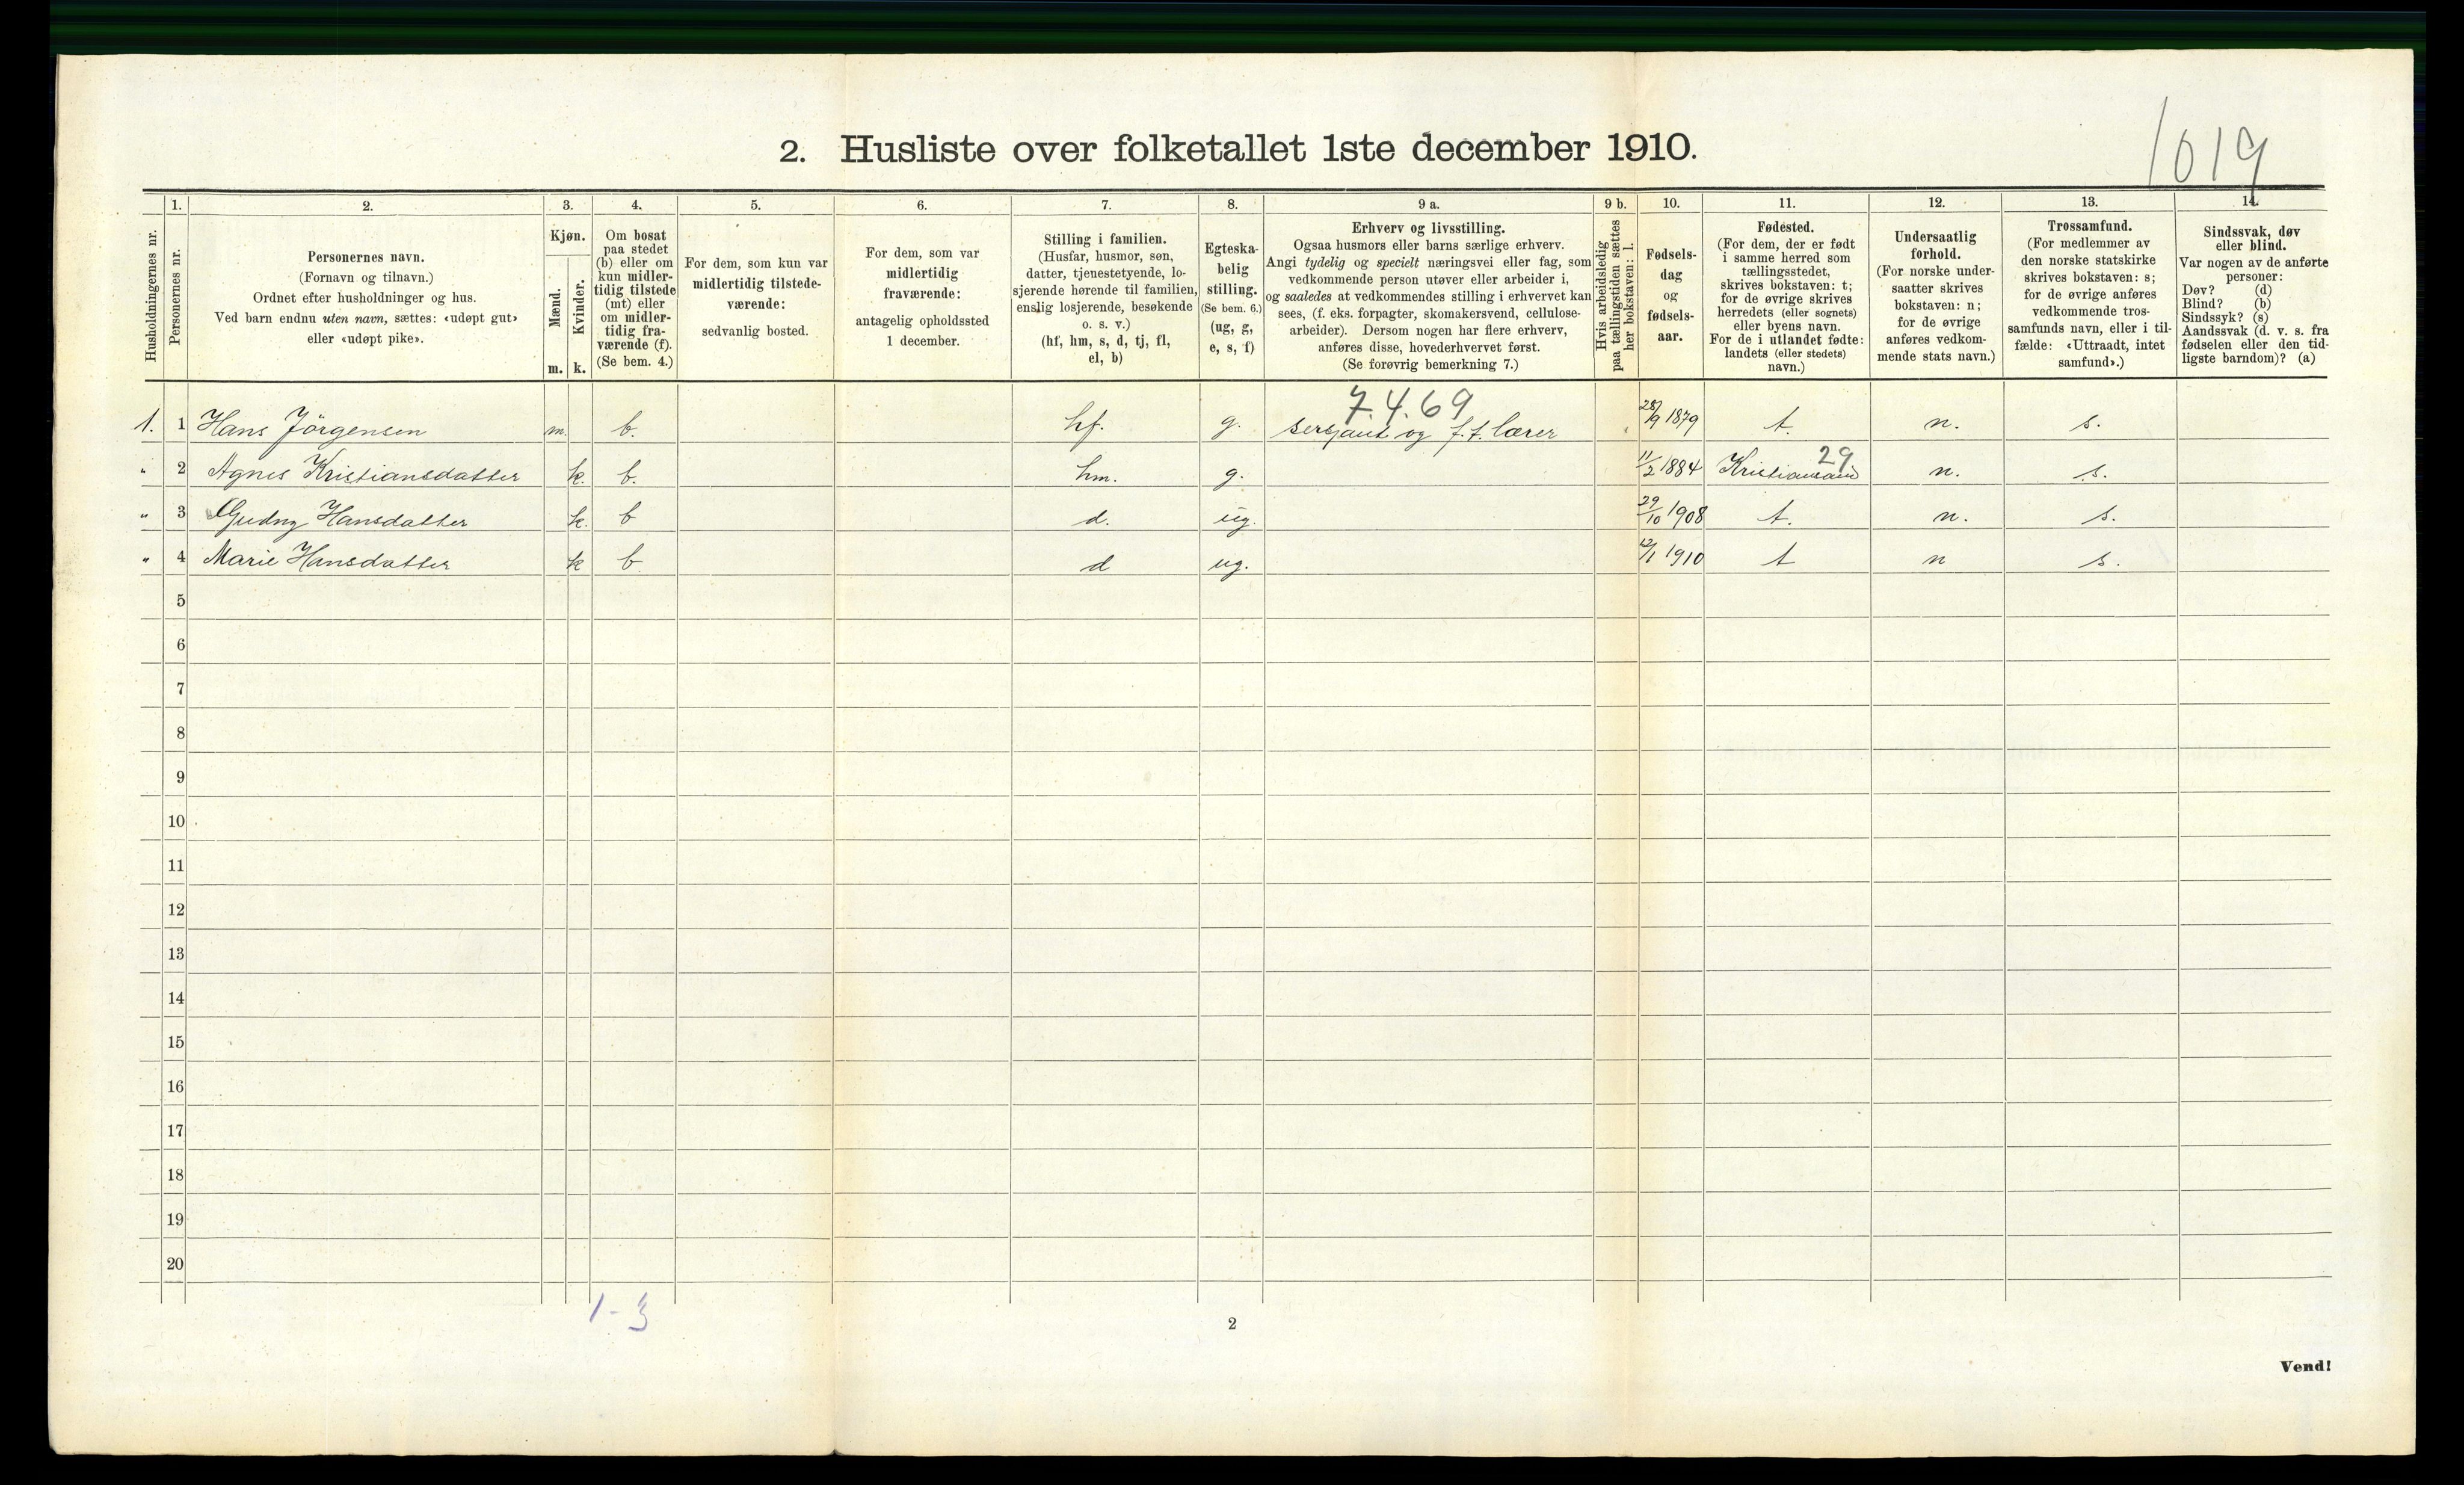 1019
2. Husliste over folketallet 1ste december 1910.
Husholdningernes nr.
1.
Personernes nr.
2.
Personernes navn.
(Fornavn og tilnavn.)
Ordnet efter husholdninger og hus.
Ved barn endnu uten navn, sættes: «udøpt gut»
eller «udøpt pike».
3.
Kjøn.
Mænd.
Kvinder.
m. k.
4.
Om bosat
paa stedet
(b) eller om
kun midler-
tidig tilstede
(mt) eller
om midler-
tidig fra-
værende (f).
(Se bem. 4.)
5.
For dem, som kun var
midlertidig tilstede-
værende:
sedvanlig bosted.
6.
For dem, som var
midlertidig
fraværende:
antagelig opholdssted
1 december.
7.
Stilling i familien.
(Husfar, husmor, søn,
datter, tjenestetyende, lo-
sjerende hørende til familien,
enslig losjerende, besøkende
o. s. v.)
(hf, hm, s, d, tj, fl,
el, b)
8.
Egteska-
belig
stilling.
(Se bem. 6.)
(ug, g,
e, s, f)
9 a.
Erhverv og livsstilling.
Ogsaa husmors eller barns særlige erhverv.
Angi tydelig og specielt næringsvei eller fag, som
vedkommende person utøver eller arbeider i,
og saaledes at vedkommendes stilling i erhvervet kan
sees, (f. eks. forpagter, skomakersvend, cellulose-
arbeider). Dersom nogen har flere erhverv,
anføres disse, hovederhvervet først.
(Se forøvrig bemerkning 7.)
9 b.
Hvis arbeidsledig
paa tællingstiden sættes
her bokstaven: l.
10.
Fødsels-
dag
og
fødsels-
aar.
11.
Fødested.
(For dem, der er født
i samme herred som
tællingsstedet,
skrives bokstaven: t;
for de øvrige skrives
herredets (eller sognets)
eller byens navn.
For de i utlandet fødte:
landets (eller stedets)
navn.)
12.
Undersaatlig
forhold.
(For norske under-
saatter skrives
bokstaven: n;
for de øvrige
anføres vedkom-
mende stats navn.)
13.
Trossamfund.
(For medlemmer av
den norske statskirke
skrives bokstaven: s;
for de øvrige anføres
vedkommende tros-
samfunds navn, eller i til-
fælde: «Uttraadt, intet
samfund».)
14.
Sindssvak, døv
eller blind.
Var nogen av de anførte
personer:
Døv? (d)
Blind? (b)
Sindssyk? (s)
Aandssvak (d. v. s. fra
fødselen eller den tid-
ligste barndom)? (a)
7.4.69
1. 1 Hans Jörgensen m. b. hf. g. sersjant og f.f. lærer 28/9 1879 t. n. s.
29
" 2 Agnes Kristiansdatter k. b. hm. g. 11/2 1884 Kristiansand n. s.
" 3 Gudny Hansdatter k. b d. ug. 29/10 1908 t. n. s.
" 4 Marie Hansdatter k b d ug. 12/1 1910 t n s.
5
6
7
8
9
10
11
12
13
14
15
16
17
18
19
20
1-3
2
Vend!